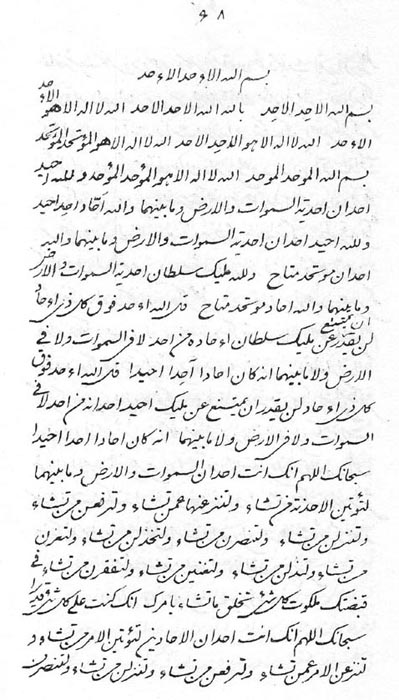 ٦٨
بسم الله الاوحد الاوحد
بسم الله الاحد الاحد بالله الله الاحد الاحد الله لا اله الا هو الاوحد
الاوحد الله لا اله الا هو الاحد الاحد الله لا اله الا هو المؤتحد المؤتحد
بسم الله الموحد الموحد الله لا اله الا هو الموحد الموحد ولله احيد
احدان احدية السموات والارض وما بينهما والله احاد احد احيد
ولله احيد احدان احدية السموات والارض وما بينهما والله
احدان موتحد متاح ولله مليك سلطان احدية السموات والارض
وما بينهما والله احاد موتحد متاح قل الله اوحد فوق كل ذي اوحاد
لن يقدر ان يمتنع عن مليك سلطان اوحاده من احد لا في السموات ولا في
الارض ولا ما بينهما انه كان احادا آحدا احيدا قل الله اوحد فوق
كل ذي اوحاد لن يقدر ان يمتنع عن مليك احيد احدانه من احد لا في
السموات ولا في الارض ولا ما بينهما انه كان احادا احدا احيدا
سبحانك اللهم انك انت احدان السموات والارض وما بينهما
لتؤتين الاحدية من تشاء ولتنزعنها عمن تشاء ولترفعن من تشاء
ولتنزلن من تشاء ولتنصرن من تشاء ولتخذلن من تشاء ولتعزن
من تشاء ولتذلن من تشاء ولتغنين من تشاء ولتفقرن من تشاء في
قبضتك ملكوت كل شيء تخلق ما تشاء بامرك انك كنت على كل شيء قديرا
سبحانك اللهم انك انت احدان الاحادين لتؤتين الامر من تشاء و
لتنزعن الامر عمن تشاء ولترفعن من تشاء ولتنزلن من تشاء ولتنصرن